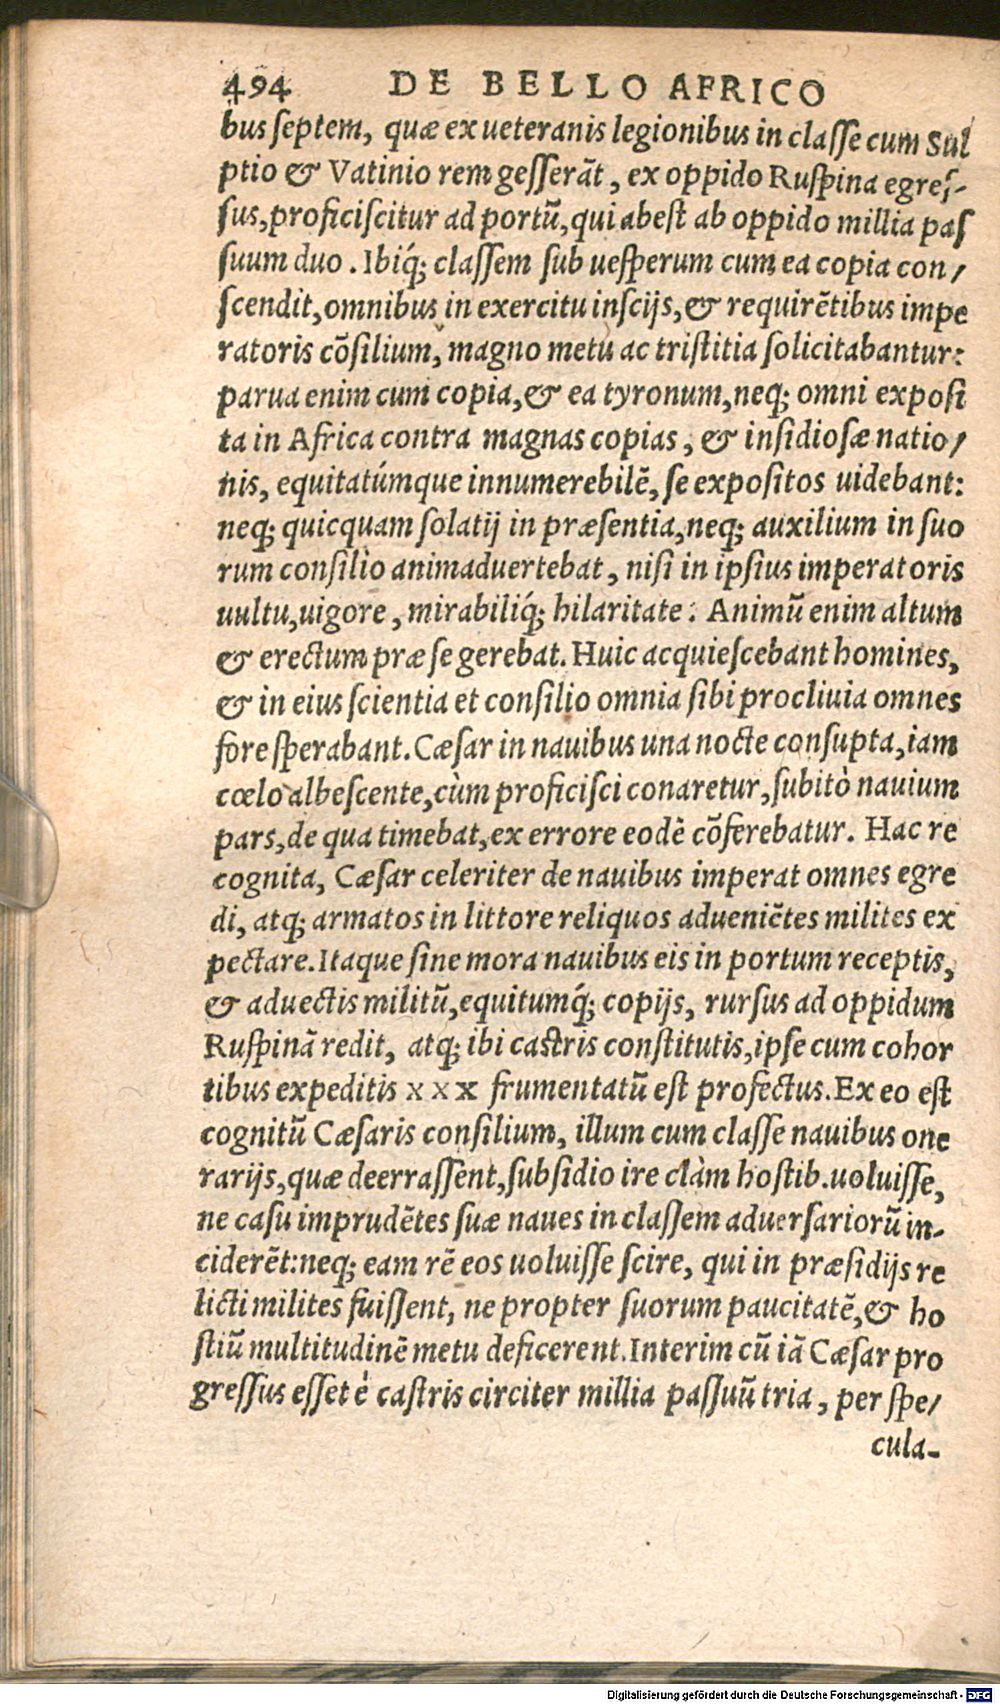 494 DE BELLO AFRICO
bus ſeptem, quæ ex ueteranis legionibus in claſſe cum Sul
ptio & Vatinio rem geſſerãt, ex oppido Ruſpina egreſ-
ſus, proficiſcitur ad portũ, qui abeſt ab oppido millia paſ
ſuum duo. Ibiq́; claſſem ſub ueſperum cum ea copia con/
ſcendit, omnibus in exercitu inſcijs, & requirẽtibus impe
ratoris cõſilium, magno metu ac triſtitia ſolicitabantur:
parua enim cum copia, & ea tyronum, neq; omni expoſi
ta in Africa contra magnas copias, & inſidioſæ natio/
nis, equitatúmque innumerebilẽ, ſe expoſitos uidebant:
neq; quicquam ſolatij in præſentia, neq; auxilium in ſuo
rum conſilio animaduertebat, niſi in ipſius imperatoris
uultu, uigore, mirabiliq́; hilaritate: Animũ enim altum
& erectum præ ſe gerebat. Huic acquieſcebant homines,
& in eius ſcientia et conſilio omnia ſibi procliuia omnes
fore ſperabant. Cæſar in nauibus una nocte conſupta, iam
cœlo albeſcente, cùm proficiſci conaretur, ſubitò nauium
pars, de qua timebat, ex errore eodẽ cõferebatur. Hac re
cognita, Cæſar celeriter de nauibus imperat omnes egre
di, atq; armatos in littore reliquos adueniẽtes milites ex
pectare. Itaque ſine mora nauibus eis in portum receptis,
& aduectis militũ, equitumq́; copijs, rurſus ad oppidum
Ruſpinã redit, atq; ibi caſtris conſtitutis, ipſe cum cohor
tibus expeditis XXX frumentatũ eſt profectus. Ex eo eſt
cognitũ Cæſaris conſilium, illum cum claſſe nauibus one
rarijs, quæ deerraſſent, ſubſidio ire clàm hoſtib. uoluiſſe,
ne caſu imprudẽtes ſuæ naues in claſſem aduerſariorũ in-
ciderẽt: neq; eam rẽ eos uoluiſſe ſcire, qui in præſidijs re
licti milites fuiſſent, ne propter ſuorum paucitatẽ, & ho
ſtiũ multitudinẽ metu deficerent. Interim cũ iã Cæſar pro
greſſus eſſet è caſtris circiter millia paſſuũ tria, per ſpe/
cula-
Digitalisierung gefördert durch die Deutsche Forschungsgemeinschaft - DFG